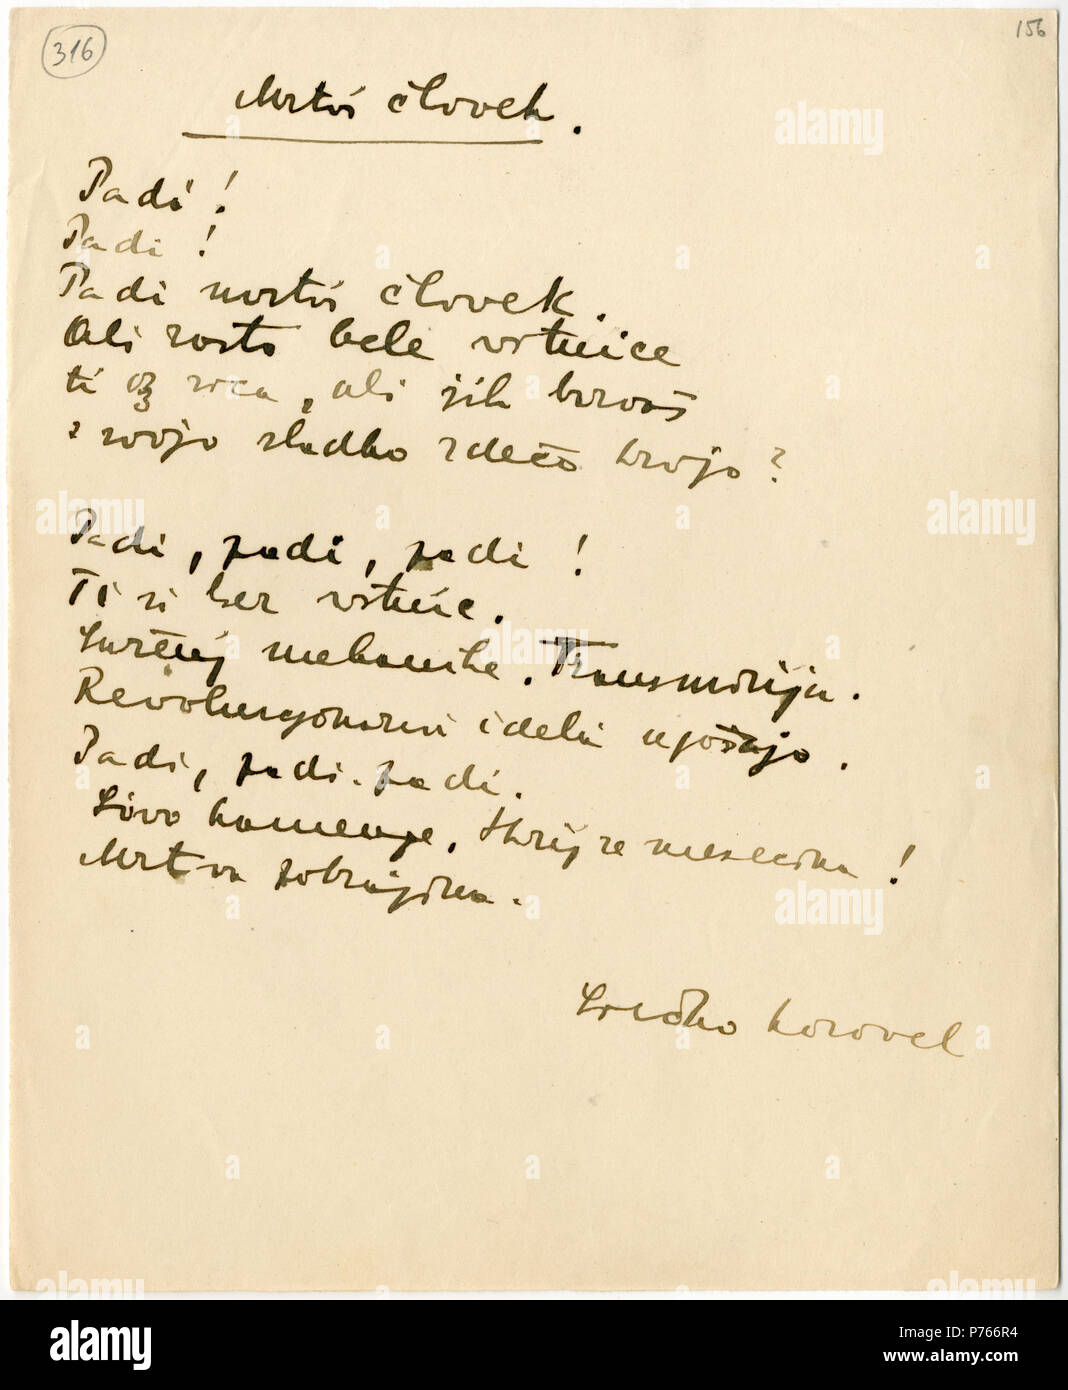 316
156
Mrtvi človek.
Padi!
Padi!
Padi mrtvi človek.
Ali rasto bele vrtnice
ti iz srca, ali jih barvaš
s svojo sladko rdečo krvjo?
Padi, padi, padi!
Ti si ber vrtnic.
Mehanike. Transmisija.
Revolucijonarni ideli ugašajo.
Padi, padi. padi.
Sivo kamenje,
Mrtva pokrajina.
Srečko Kosovel
alamy
Image ID: P766R4
www.alamy.com